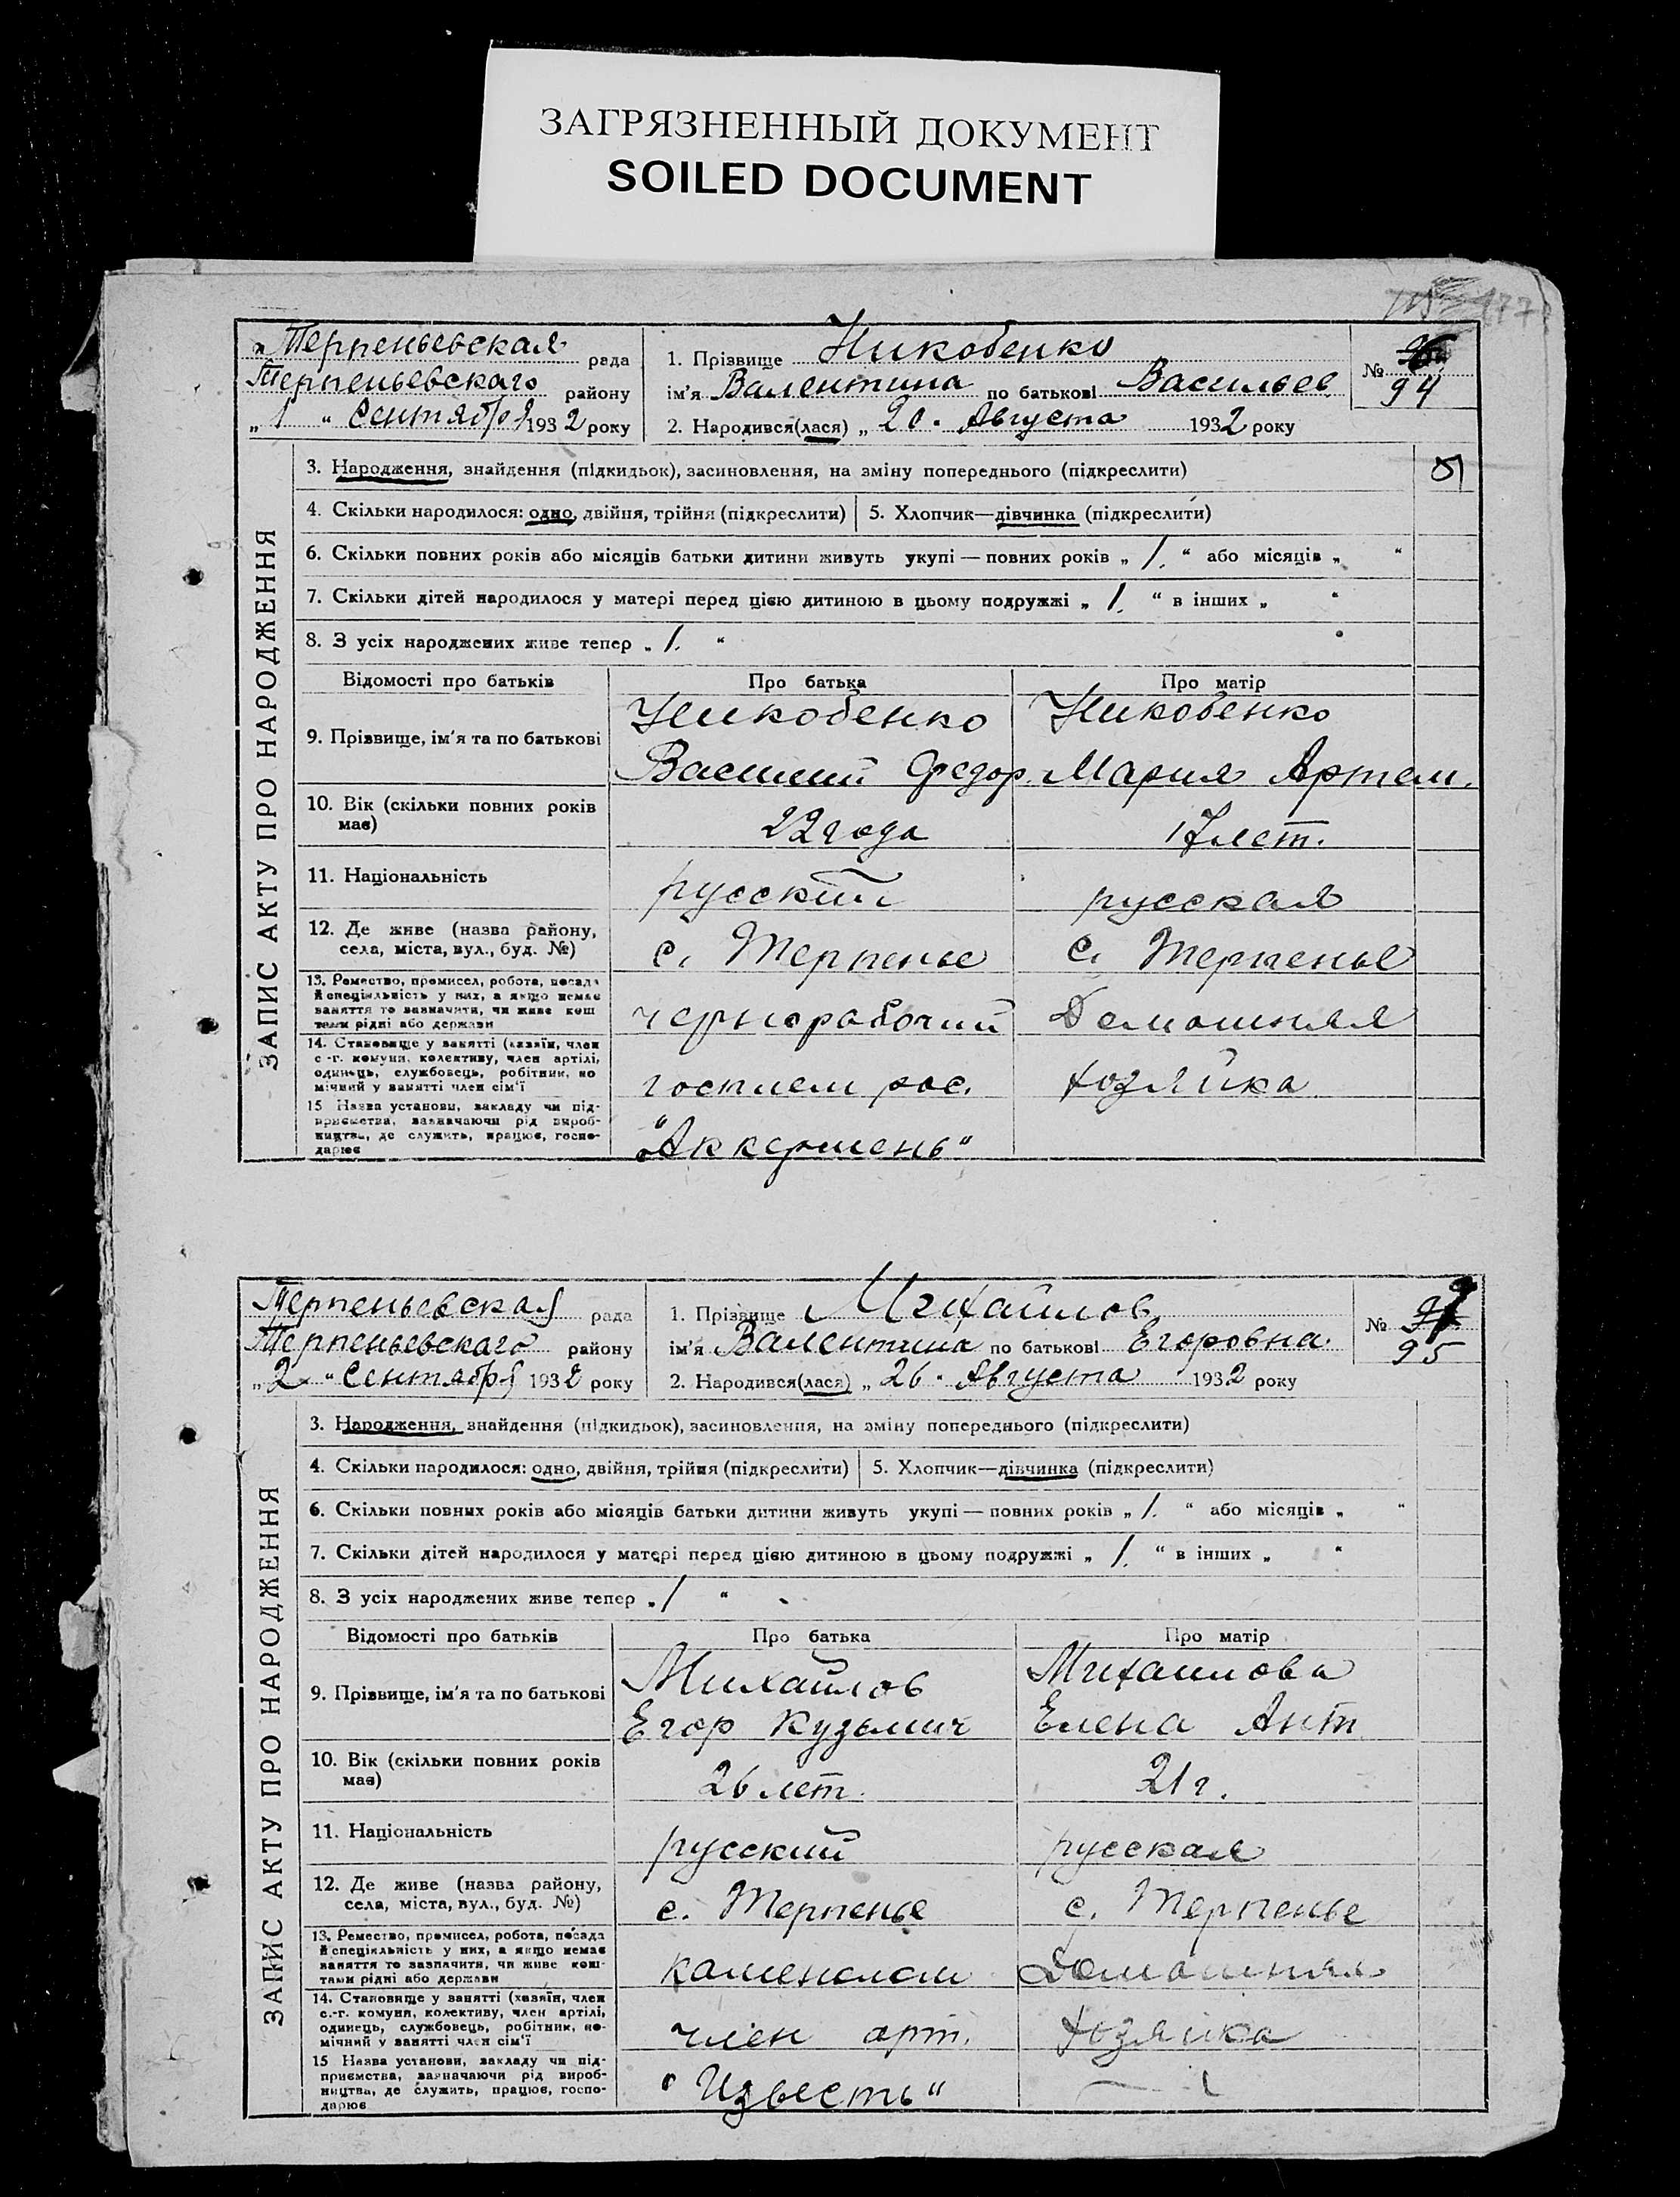 ЗАГРЯЗНЕННЫЙ ДОКУМЕНТ
SOILED DOCUMENT
Терпеньевская рада
Терпеньевскаго району
„ 1 “ Сентября 1932 року
1. Прізвище Никобенко
ім'я Валентина по батькові Васильев.
2. Народився(лася) „ 20 “ Августа 1932 року
№ 94
3. Народження, знайдення (підкидьок), засиновлення, на зміну попереднього (підкреслити)
4. Скільки народилося: одно, двійня, трійня (підкреслити) 5. Хлопчик—дівчинка (підкреслити)
6. Скільки повних років або місяців батьки дитини живуть укупі — повних років „ 1. “ або місяців „ “
7. Скільки дітей народилося у матері перед цією дитиною в цьому подружжі „ 1. “ в інших „ “
8. З усіх народжених живе тепер „ 1. “
ЗАПИС АКТУ ПРО НАРОДЖЕННЯ
Відомості про батьків Про батька Про матір
9. Прізвище, ім'я та по батькові
Никобенко Никобенко
Василий Федор. Мария Артем.
10. Вік (скільки повних років має) 22 года 17 лет.
11. Національність русский русская
12. Де живе (назва району, села, міста, вул., буд. №) с. Терпенье с. Терпенье
13. Ремество, промисел, робота, посада й спеціяльність у них, а якщо немає заняття то зазначити, чи живе коштами рідні або держави
чернорабочий Домашняя
14. Становище у занятті (хазяїн, член с.-г. комуни, колективу, член артілі, одинець, службовець, робітник, помічний у занятті член сім'ї
госплем рас. хозяйка
15 Назва установи, закладу чи підприємства, зазначаючи рід виробництва, де служить, працює, господарює
„Аккермень“
Терпеньевская рада
Терпеньевскаго району
„ 2 “ Сентября 1932 року
1. Прізвище Михайлов
ім'я Валентина по батькові Егоровна.
2. Народився(лася) „ 26 “ Августа 1932 року
№ 95
3. Народження, знайдення (підкидьок), засиновлення, на зміну попереднього (підкреслити)
4. Скільки народилося: одно, двійня, трійня (підкреслити) 5. Хлопчик—дівчинка (підкреслити)
6. Скільки повних років або місяців батьки дитини живуть укупі — повних років „ 1. “ або місяців „ “
7. Скільки дітей народилося у матері перед цією дитиною в цьому подружжі „ 1. “ в інших „ “
8. З усіх народжених живе тепер „ 1 “
ЗАПИС АКТУ ПРО НАРОДЖЕННЯ
Відомості про батьків Про батька Про матір
9. Прізвище, ім'я та по батькові
Михайлов Михаилова
Егор Кузьмич Елена Ант
10. Вік (скільки повних років має) 26 лет. 21 г.
11. Національність русский русская
12. Де живе (назва району, села, міста, вул., буд. №) с. Терпенье с. Терпенье
13. Ремество, промисел, робота, посада й спеціяльність у них, а якщо немає заняття то зазначити, чи живе коштами рідні або держави
каменолом Домашняя
14. Становище у занятті (хазяїн, член с.-г. комуни, колективу, член артілі, одинець, службовець, робітник, помічний у занятті член сім'ї
член арт. хозяйка
15 Назва установи, закладу чи підприємства, зазначаючи рід виробництва, де служить, працює, господарює
"Известь"